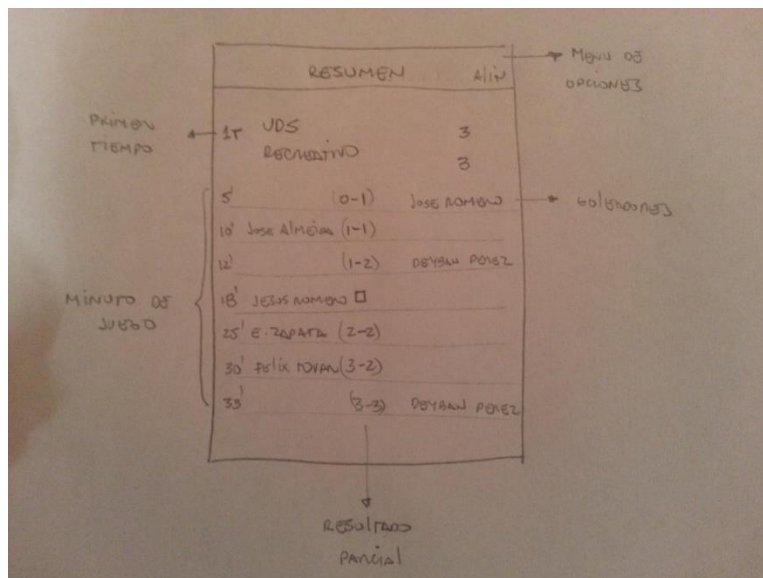 RESUMEN Alin
MENU DE
OPCIONES
PRIMER
TIEMPO
1T UDS 3
RECREATIVO 3
5' (0-1) JOSE ROMERO
GOLEADORES
10' JOSE AlMEIDA (1-1)
12' (1-2) DEYBAN PEREZ
MINUTO DE
JUEGO
18' JESUS ROMERO
25' E. ZAPATA (2-2)
30' FELIX TOVAR (3-2)
33' (3-3) DEYBAN PEREZ
RESULTADO
PARCIAL